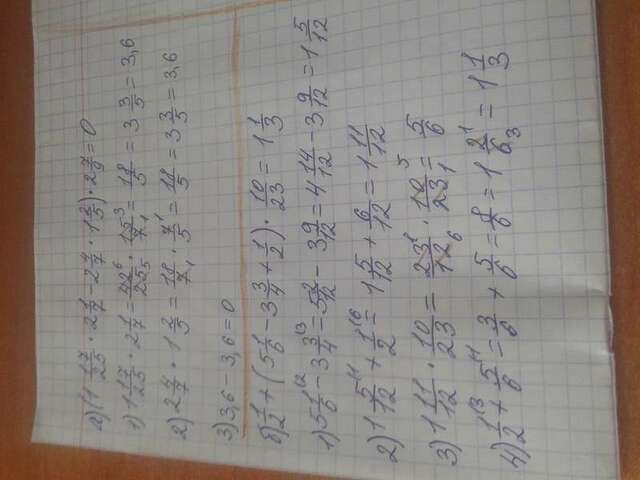 а) (1 17/25 · 2 1/7 − 2 4/7 · 1 2/5) · 2 7/9 = 0
1) 1 17/25 · 2 1/7 = 42⁶/25₅ · 15³/7₁ = 18/5 = 3 3/5 = 3,6
2) 2 4/7 · 1 2/5 = 18/7₁ · 7¹/5 = 18/5 = 3 3/5 = 3,6
3) 3,6 − 3,6 = 0
б) 1/2 + (5 1/6 − 3 3/4 + 1/2) · 10/23 = 1 1/3
1) 5 1/6⁽² − 3 3/4⁽³ = 5 2/12 − 3 9/12 = 4 14/12 − 3 9/12 = 1 5/12
2) 1 5/12⁽¹ + 1/2⁽⁶ = 1 5/12 + 6/12 = 1 11/12
3) 1 11/12 · 10/23 = 23¹/12₆ · 10⁵/23₁ = 5/6
4) 1/2⁽³ + 5/6⁽¹ = 3/6 + 5/6 = 8/6 = 1 2¹/6₃ = 1 1/3